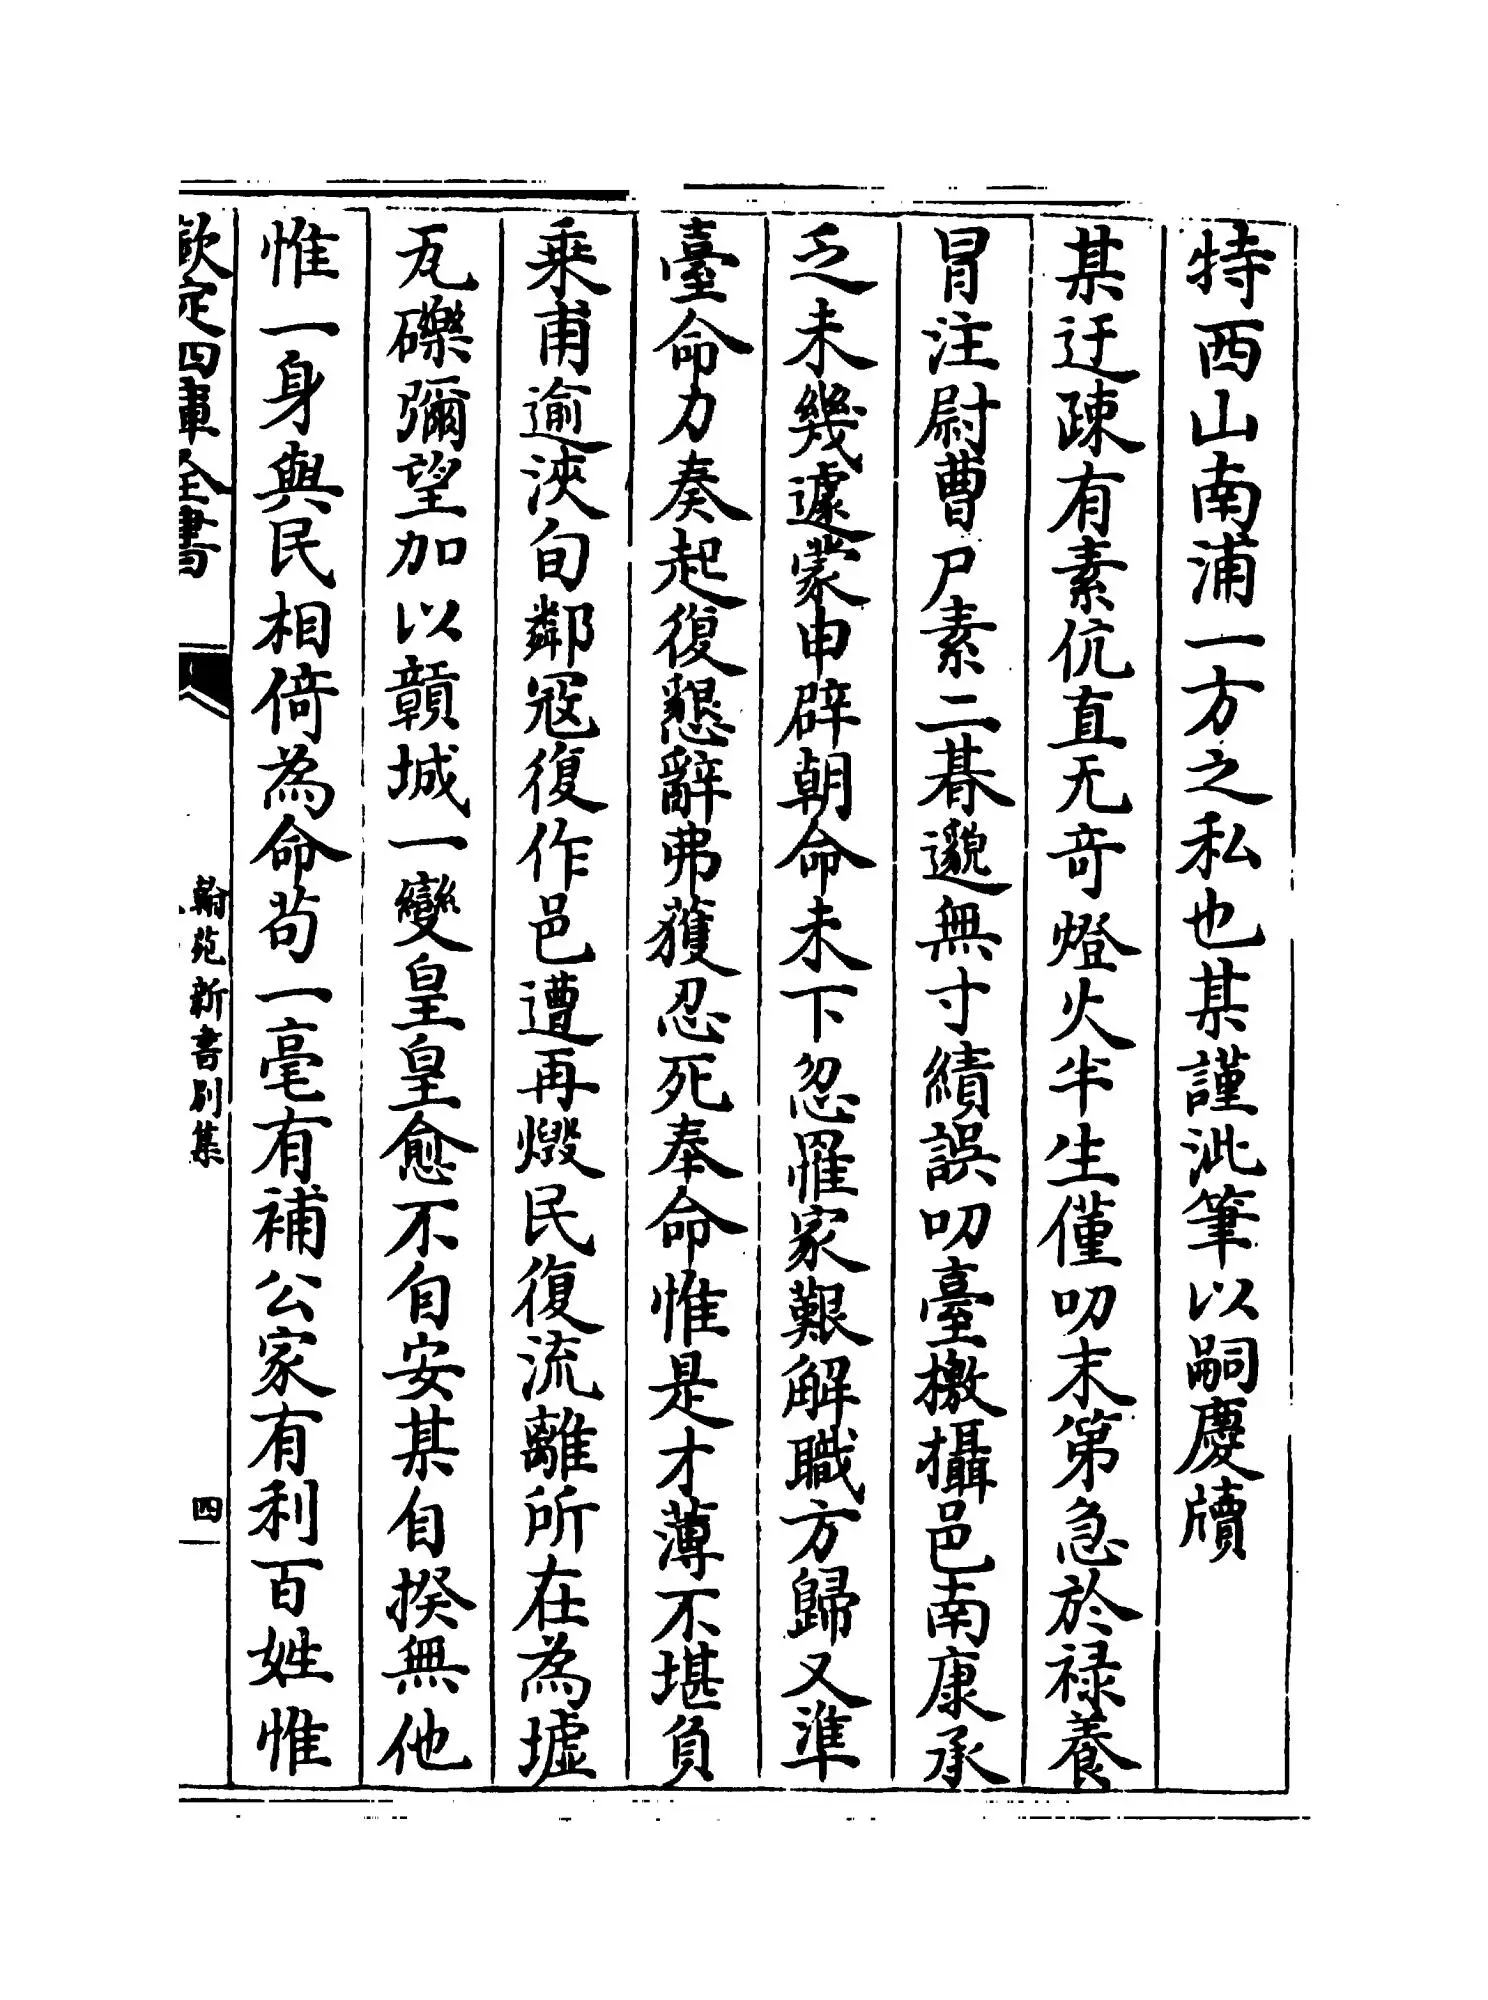 特西山南浦一方之私也某謹泚筆以嗣慶牘
某迂疎有素伉直无竒燈火半生僅叨末第急於禄養
冐注尉曹尸素二朞邈無寸績誤叨臺檄攝邑南康承
乏未幾遽蒙申辟朝命未下忽罹家艱解職方歸又準
臺命力奏起復懇辭弗獲忍死奉命惟是才薄不堪負
乗甫逾浹旬鄰冦復作邑遭再燬民復流離所在為墟
瓦礫彌望加以贑城一變皇皇愈不自安某自揆無他
惟一身與民相倚為命茍一毫有補公家有利百姓惟
欽定四庫全書
翰苑新書别集
四